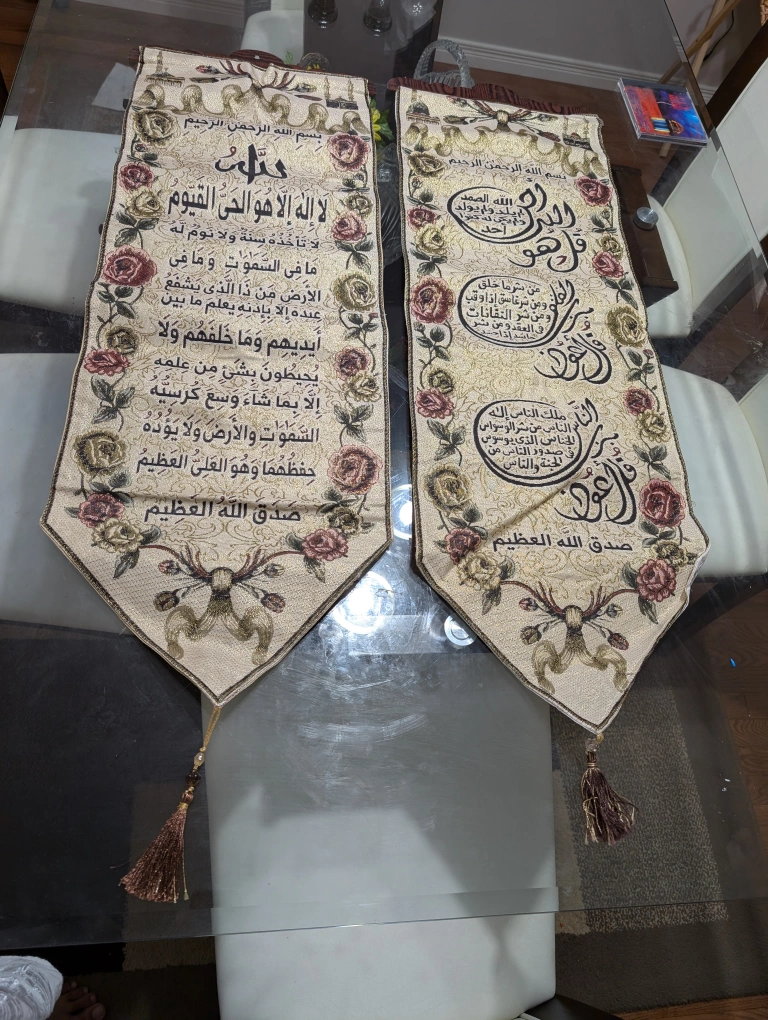 بسم الله الرحمن الرحيم
الله
لا إله إلا هو الحي القيوم
لا تأخذه سنة ولا نوم له
ما في السموت وما في
الأرض من ذا الذي يشفع
عنده إلا بإذنه يعلم ما بين
أيديهم وما خلفهم ولا
يحيطون بشئ من علمه
إلا بما شاء وسع كرسيه
السموت والأرض ولا يؤده
حفظهما وهو العلي العظيم
صدق الله العظيم
بسم الله الرحمن الرحيم
قل هو الله احد
الله الصمد
لم يلد ولم يولد
احد
قل أعوذ برب الفلق
من شر ما خلق
ومن شر غاسق إذا وقب
ومن شر النفاثات
في العقد ومن شر
قل أعوذ برب الناس
ملك الناس إله
الناس من شر الوسواس
الخناس الذي يوسوس
في صدور الناس من
لجنة والناس
صدق الله العظيم